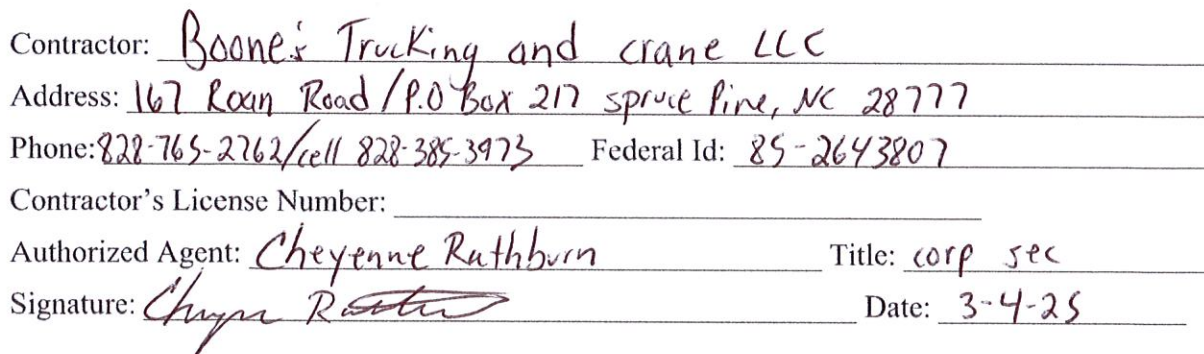 Contractor: Boone's Trucking and crane LLC
Address: 167 Roan Road / P.O Box 217 spruce Pine, NC 28777
Phone: 828-765-2762/cell 828-385-3973 Federal Id: 85-2643807
Contractor's License Number:
Authorized Agent: Cheyenne Rathburn Title: corp sec
Signature: Date: 3-4-25